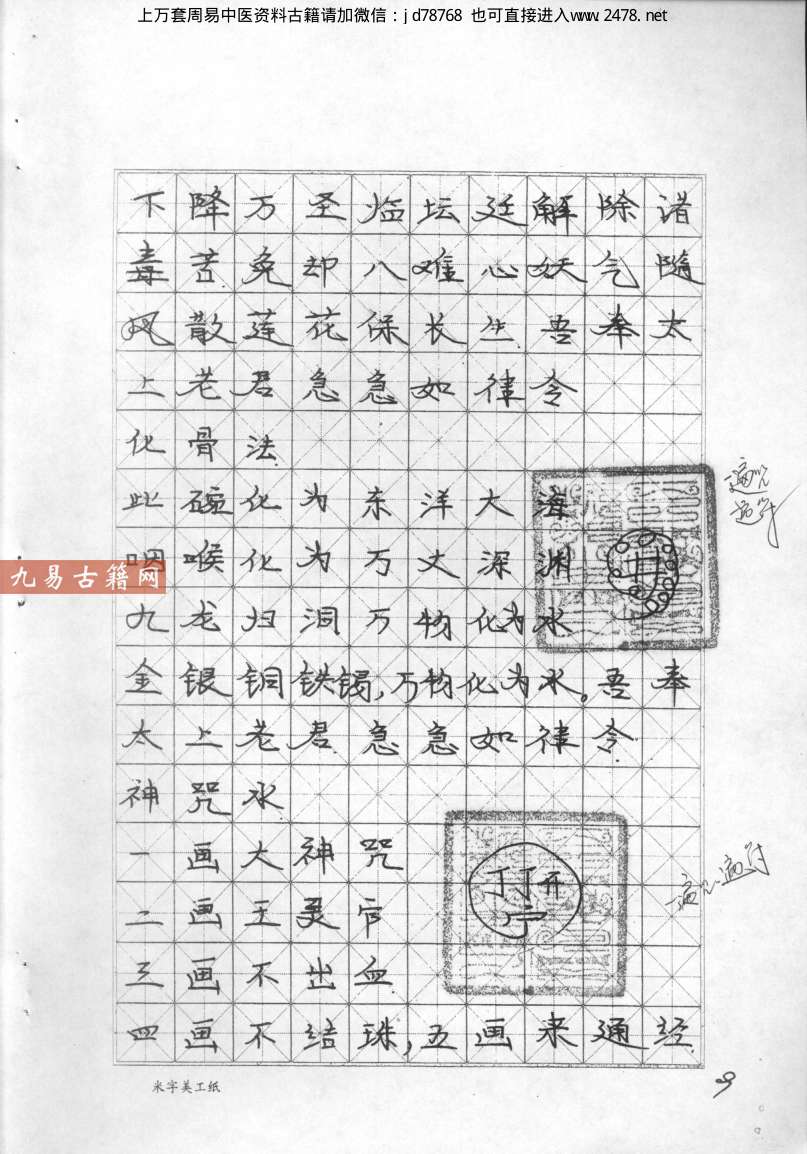 上万套周易中医资料古籍请加微信：jd78768 也可直接进入www.2478.net
下降万圣临坛廷解除诸
毒苦免却八难心妖气随
风散莲花保长生吾奉太
上老君急急如律令
化骨法
此碗化为东洋大海
咽喉化为万丈深渊
九龙归洞万物化为水
金银铜铁锡，万物化为水。吾奉
太上老君急急如律令
神咒水
一画大神咒
二画王灵官
三画不出血
四画不结珠，五画来通经
九易古籍网
一遍咒
一遍符
一遍咒一遍符
米字美工纸
9